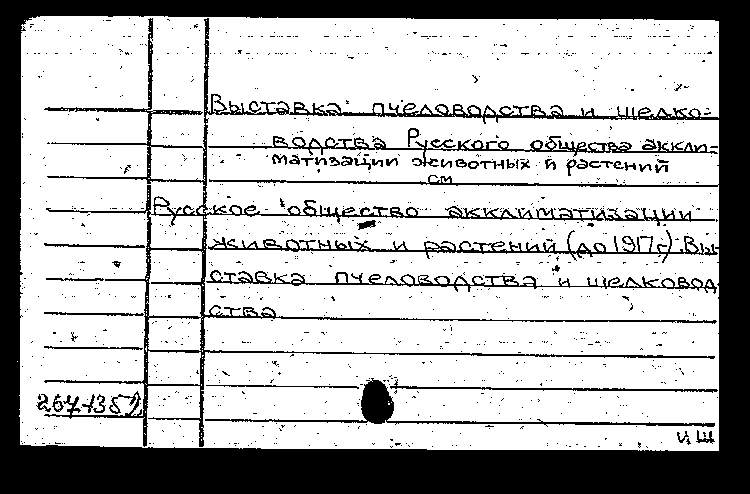 Выставка пчеловодства и шелко-
водства Русского общества аккли-
матизации животных и растений
см
Русское общество акклиматизации
животных и растений (до 1917г.). Вы-
ставка пчеловодства и шелковод-
ства
И Ш